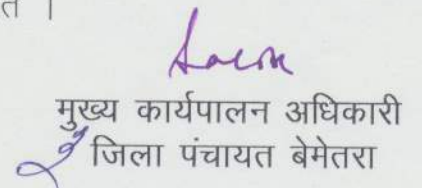 त ।
मुख्य कार्यपालन अधिकारी
जिला पंचायत बेमेतरा